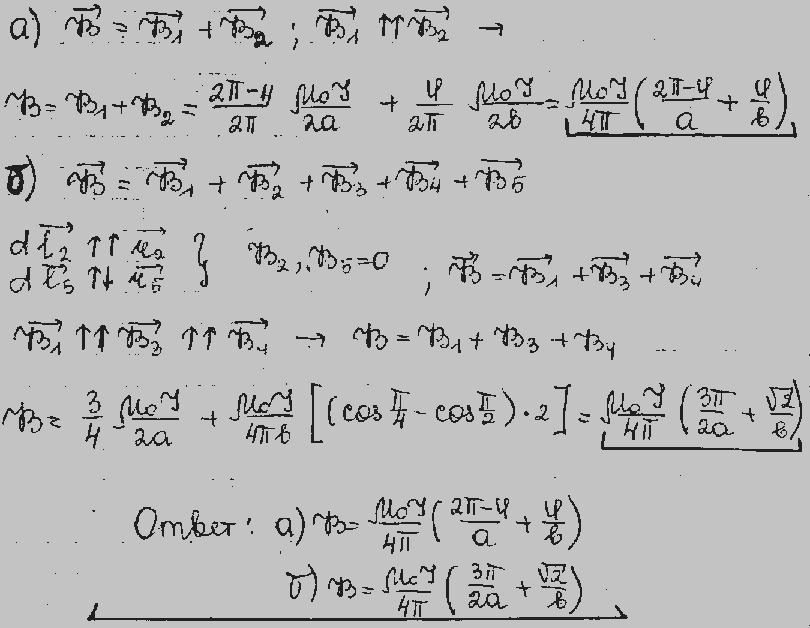 а) B⃗ = B⃗₁ + B⃗₂ ; B⃗₁ ↑↑ B⃗₂ →
B = B₁ + B₂ = (2π-φ)/(2π) · (μ₀I)/(2a) + φ/(2π) · (μ₀I)/(2b) = (μ₀I)/(4π) ((2π-φ)/a + φ/b)
б) B⃗ = B⃗₁ + B⃗₂ + B⃗₃ + B⃗₄ + B⃗₅
dl⃗₂ ↑↑ r⃗₂ } B₂, B₅ = 0
dl⃗₅ ↑↓ r⃗₅ ; B⃗ = B⃗₁ + B⃗₃ + B⃗₄
B⃗₁ ↑↑ B⃗₃ ↑↑ B⃗₄ → B = B₁ + B₃ + B₄
B = 3/4 · (μ₀I)/(2a) + (μ₀I)/(4πb) [(cos π/4 - cos π/2) · 2] = (μ₀I)/(4π) (3π/(2a) + √2/b)
Ответ: а) B = (μ₀I)/(4π) ((2π-φ)/a + φ/b)
б) B = (μ₀I)/(4π) (3π/(2a) + √2/b)